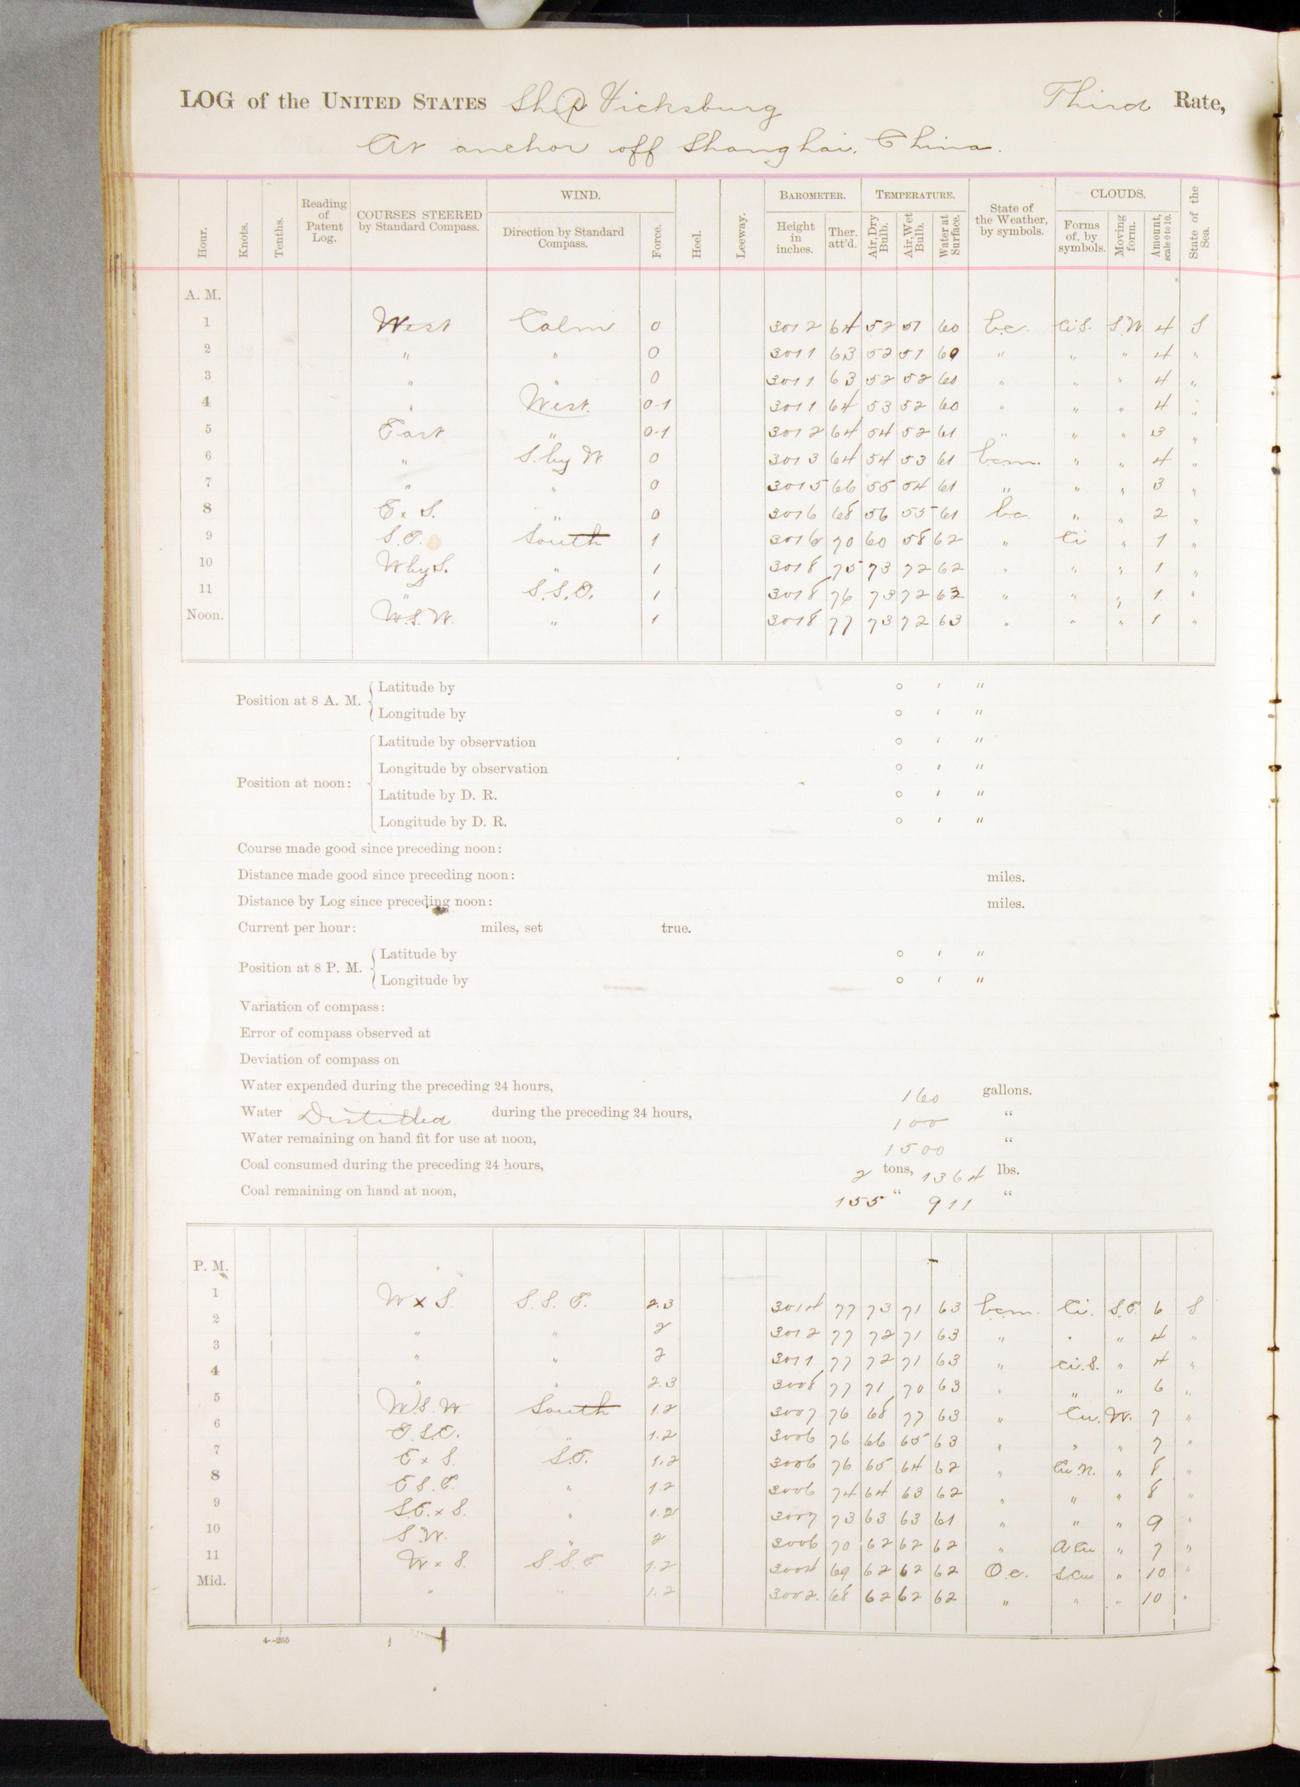 LOG of the UNITED STATES Ship Vicksburg Third Rate,
At anchor off Shanghai, China.
Hour. Knots. Tenths. Reading of Patent Log. COURSES STEERED by Standard Compass. WIND. Direction by Standard Compass. Force. Heel. Leeway. BAROMETER. Height in inches. Ther. att'd. TEMPERATURE. Air, Dry Bulb. Air, Wet Bulb. Water at Surface. State of the Weather, by symbols. CLOUDS. Forms of, by symbols. Moving form. Amount, scale 0 to 10. State of the Sea.
A. M.
1 West Calm 0 3012 64 52 51 60 b.c. Ci.S. S.W. 4 S
2 " " 0 3011 63 52 51 60 " " " 4 "
3 " " 0 3011 63 52 52 60 " " " 4 "
4 " West. 0-1 3011 64 53 52 60 " " " 4 "
5 East " 0-1 3012 64 54 52 61 " " " 3 "
6 " S. by W. 0 3013 64 54 53 61 bcm. " " 4 "
7 " " 0 3015 66 55 54 61 " " " 3 "
8 E x S. " 0 3016 68 56 55 61 bc " " 2 "
9 S.E. South 1 3016 70 60 58 62 " Ci " 1 "
10 W by S. " 1 3018 75 73 72 62 " " " 1 "
11 " S.S.E. 1 3018 76 73 72 63 " " " 1 "
Noon. W.S.W. " 1 3018 77 73 72 63 " " " 1 "
Position at 8 A. M. Latitude by ° ' "
Longitude by ° ' "
Position at noon: Latitude by observation ° ' "
Longitude by observation ° ' "
Latitude by D. R. ° ' "
Longitude by D. R. ° ' "
Course made good since preceding noon:
Distance made good since preceding noon: miles.
Distance by Log since preceding noon: miles.
Current per hour: miles, set true.
Position at 8 P. M. Latitude by ° ' "
Longitude by ° ' "
Variation of compass:
Error of compass observed at
Deviation of compass on
Water expended during the preceding 24 hours, 160 gallons.
Water Distilled during the preceding 24 hours, 100 "
Water remaining on hand fit for use at noon, 1500 "
Coal consumed during the preceding 24 hours, 2 tons, 1364 lbs.
Coal remaining on hand at noon, 155 " 911 "
P. M.
1 W x S. S. S. E. 2.3 3014 77 73 71 63 bcm. Ci. S.E. 6 S
2 " " 2 3012 77 72 71 63 " " " 4 "
3 " " 2 3011 77 72 71 63 " Ci.S. " 4 "
4 " " 2.3 3008 77 71 70 63 " " " 6 "
5 W.S.W South 1.2 3007 76 68 77 63 " Cu. W. 7 "
6 E.S.E. " 1.2 3006 76 66 65 63 " " " 7 "
7 E x S. S.E. 1.2 3006 76 65 64 62 " Cu.N. " 8 "
8 E S. E. " 1.2 3006 74 64 63 62 " " " 8 "
9 S.E. x S. " 1.2 3007 73 63 63 61 " " " 9 "
10 S.W. " 2 3006 70 62 62 62 " A Cu " 7 "
11 W x S. S.S.E 1.2 3004 69 62 62 62 O.c. S.Cu " 10 "
Mid. " " 1.2 3002 68 62 62 62 " " " 10 "
4--255